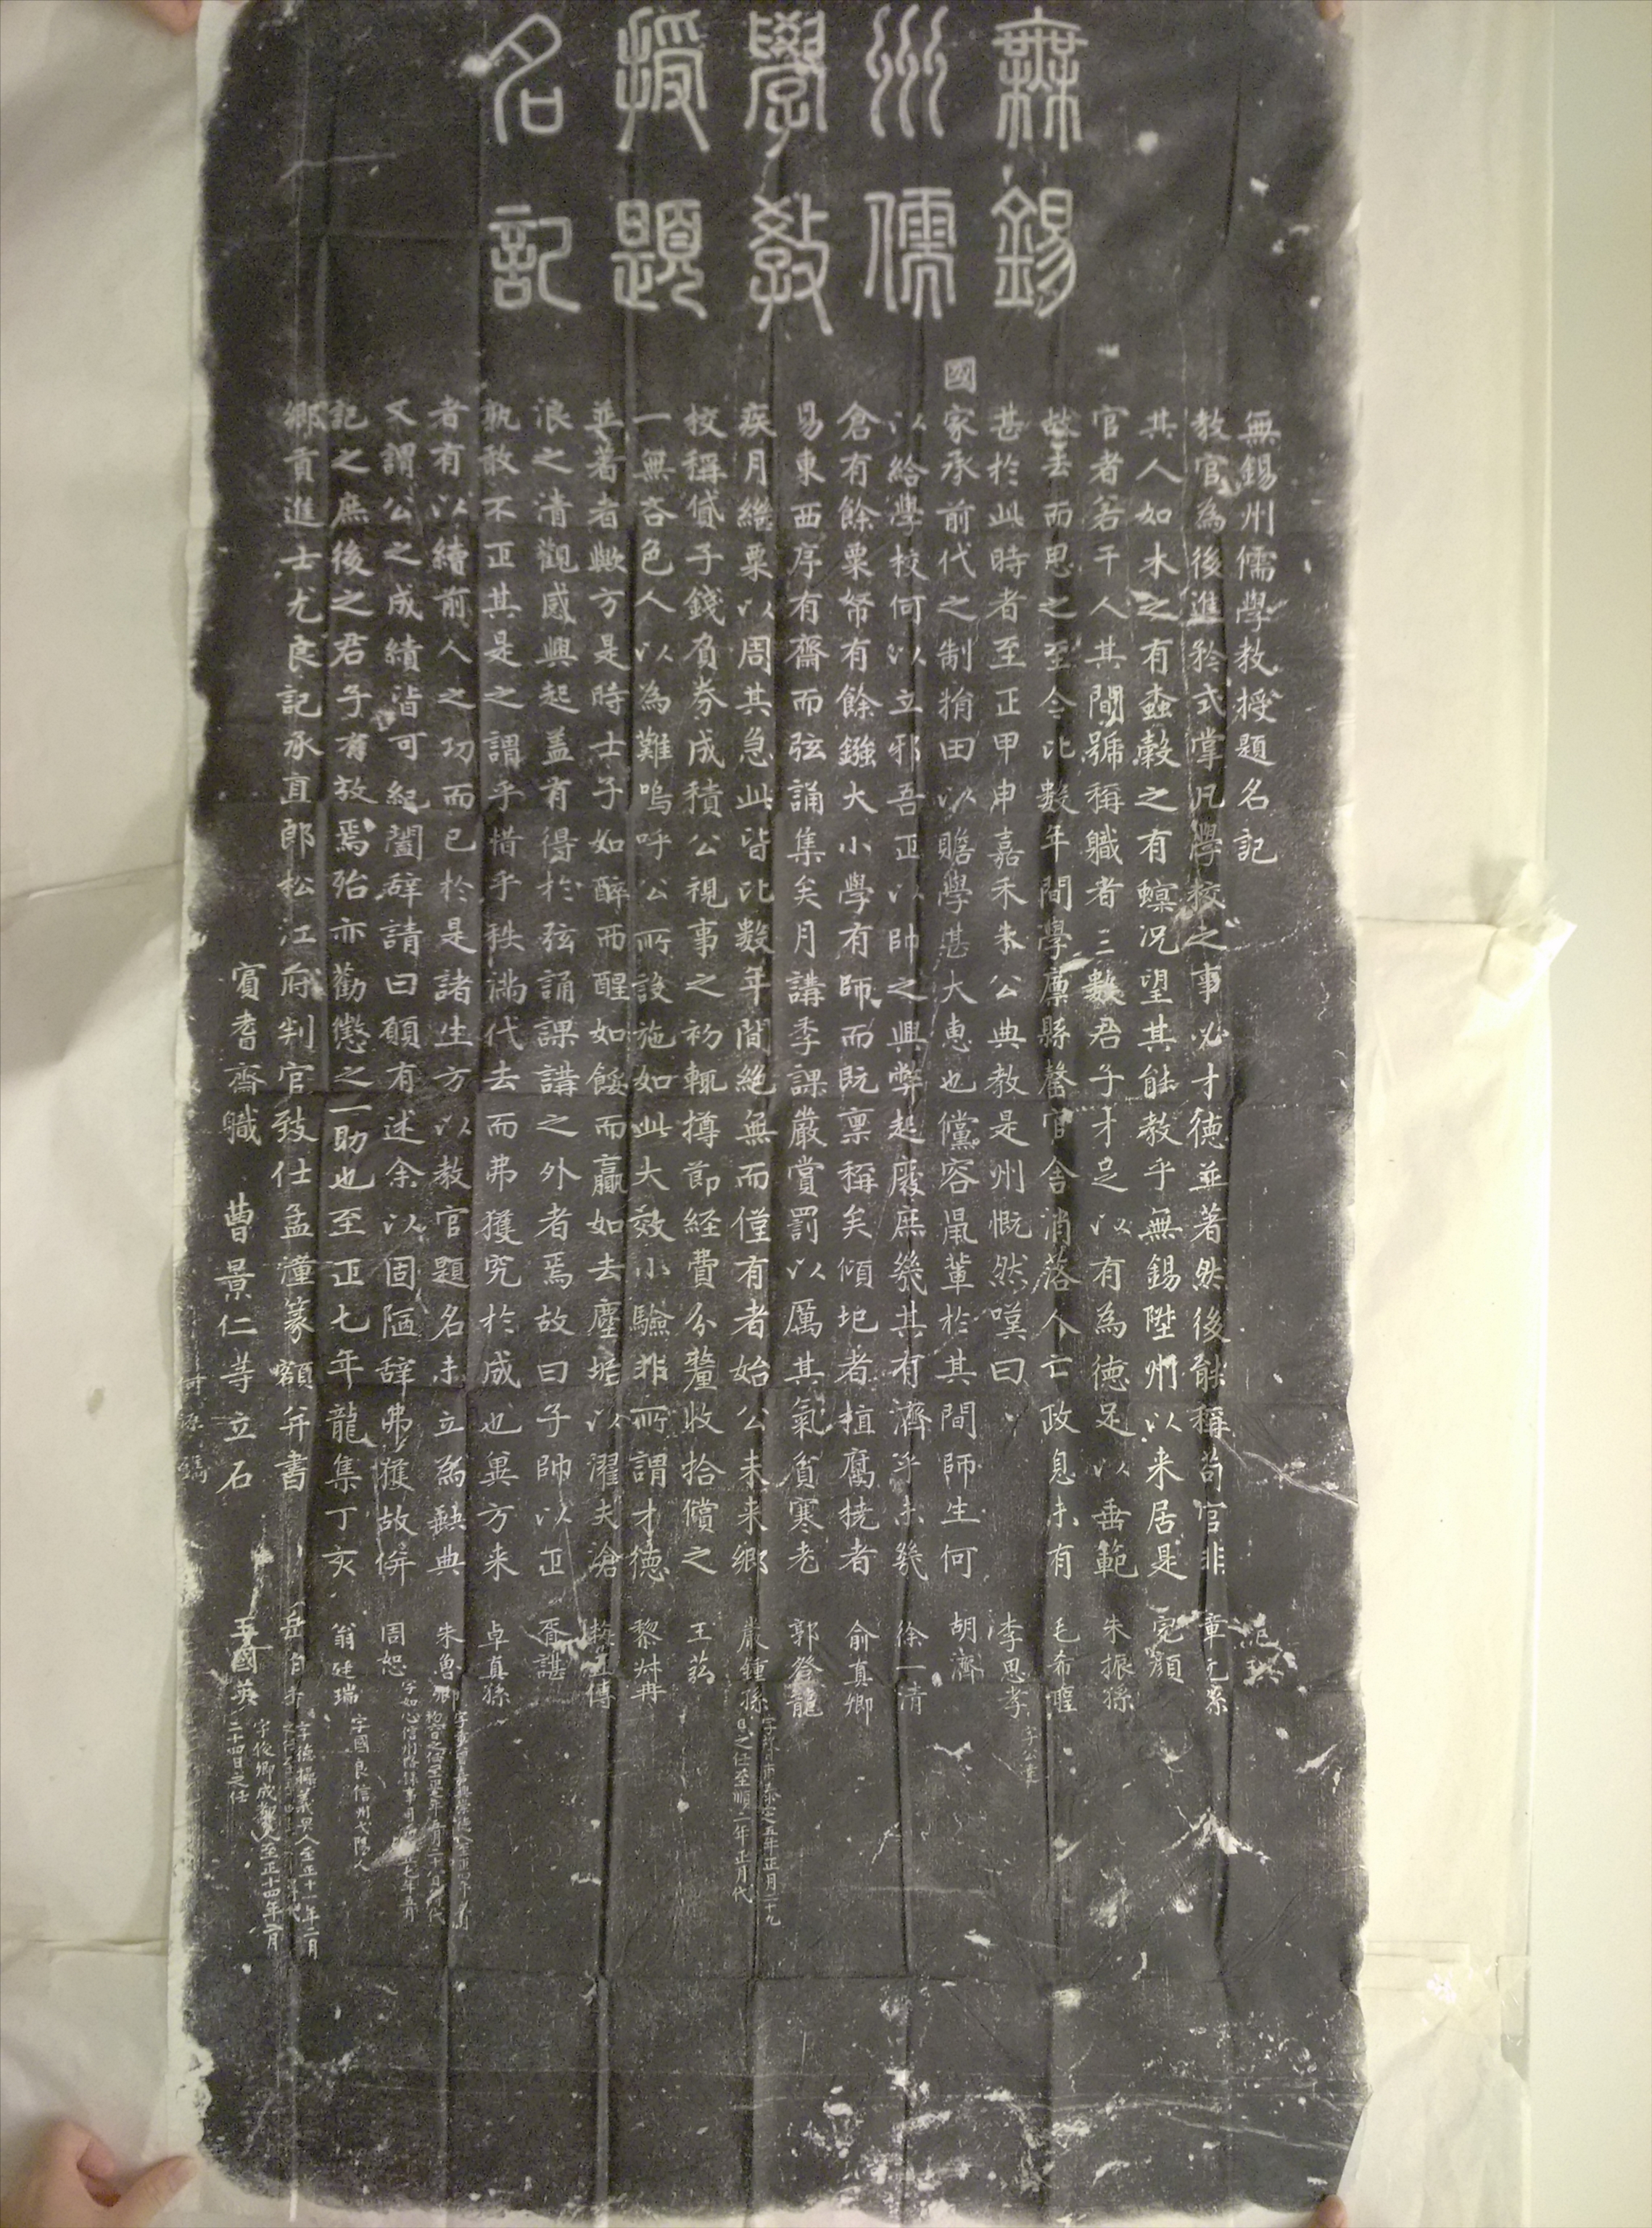 無錫
州儒
學教
授題
名記
無錫州儒學教授題名記
教官為後進矜式掌凡學校之事必才德並著然後能稱苟官非
其人如木之有蠹穀之有螟況望其能教乎無錫陞州以来居是
官者若干人其間號稱職者三數君子才足以有為德足以垂範
故去而思之至今比數年間學廩縣罄官舎消落人亡政息未有
甚於此時者至正甲申嘉禾朱公典教是州慨然嘆曰
國家承前代之制捐田以贍學堪大恵也儻容鼠輩於其間師生何
以給學校何以立邪吾正以帥之興弊起廢庶幾其有濟乎未幾
倉有餘粟帑有餘鏹大小學有師而既稟稱矣傾圯者植腐撓者
易東西序有齋而弦誦集矣月講季課嚴賞罰以厲其氣貧寒老
疾月繼粟以周其急此皆比數年間絶無而僅有者始公未来鄉
校稱貸子錢負券成積公視事之初輒撙節経費分釐收拾償之
一無吝色人以為難嗚呼公所設施如此大效小驗非所謂才德
並著者歟方是時士子如醉而醒如餒而贏如去塵垢以濯夫滄
浪之清觀感興起盖有得於弦誦課講之外者焉故曰子帥以正
孰敢不正其是之謂乎惜乎秩滿代去而弗獲究於成也異方来
者有以續前人之功而已於是諸生方以教官題名未立為缺典
又謂公之成績皆可紀闔辞請曰願有述余以固陋辞弗獲故併
記之庶後之君子有放焉殆亦勸懲之一助也至正七年龍集丁亥
鄉貢進士尤良記承直郎松江府判官致仕孟潼篆額并書
賓耆齋職 曹景仁等立石
章元
完顏
朱振孫
毛希
李思孝 字公
胡濟
徐一清
俞真卿
郭登龍
嚴鍾孫 五年正月二十九日之任至順二年正月代
王
黎
傳
胥諶
卓真孫
朱魯卿
周恕 字如心信州路
翁廷瑞 字國良信州弋陽人
岳自 字德操義興人至正十一年二月
王國英 字俊卿成都人至正十四年二月二十四日之任